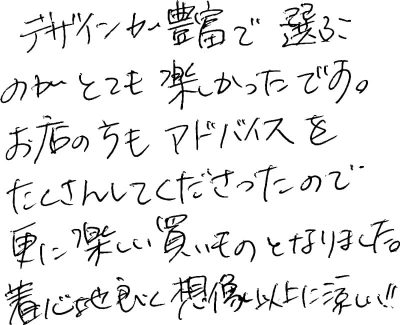 デザインが豊富で 選ぶ
のが とても 楽しかったです。
お店の方も アドバイスを
たくさんしてくださったので
更に楽しい買いものとなりました。
着心地良く想像以上に涼しい!!